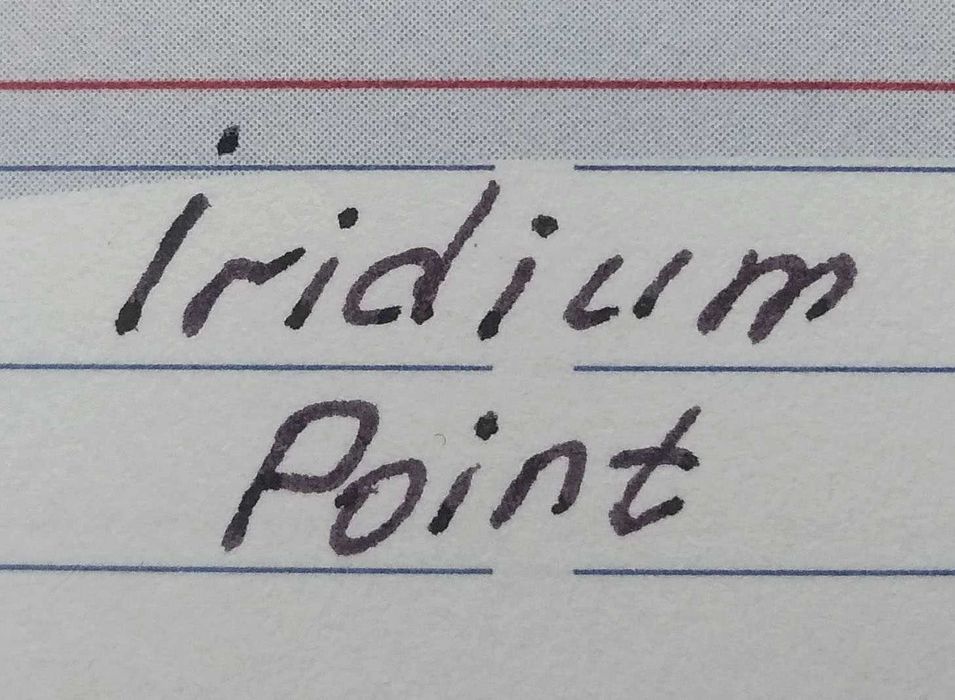 Iridium
Point